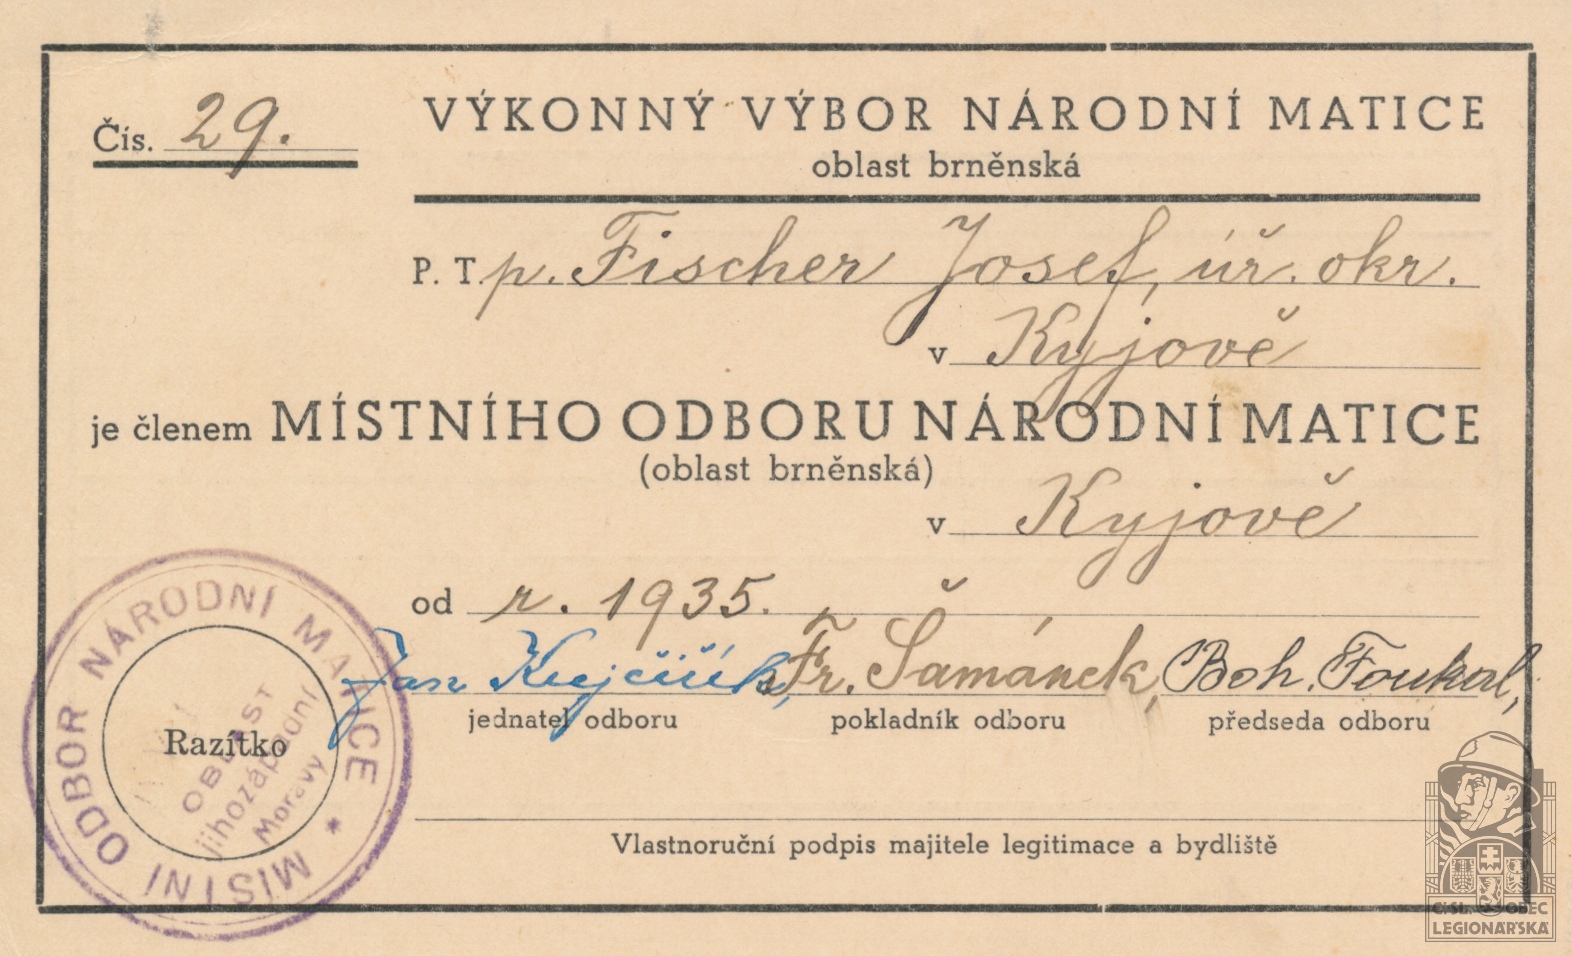 Čís. 29.
VÝKONNÝ VÝBOR NÁRODNÍ MATICE
oblast brněnská
P. T. p. Fischer Josef, úř. okr.
v Kyjově
je členem MÍSTNÍHO ODBORU NÁRODNÍ MATICE
(oblast brněnská)
v Kyjově
od r. 1935.
Jan Fr. Šamánek, Boh. Foukal,
jednatel odboru pokladník odboru předseda odboru
Razítko
MÍSTNÍ ODBOR NÁRODNÍ MATICE *
OBLAST
jihozápadní
Moravy
Vlastnoruční podpis majitele legitimace a bydliště
ČSL. OBEC
LEGIONÁŘSKÁ